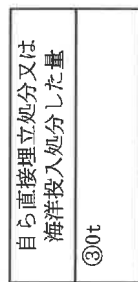 自ら直接埋立処分又は
海洋投入処分した量
③0t